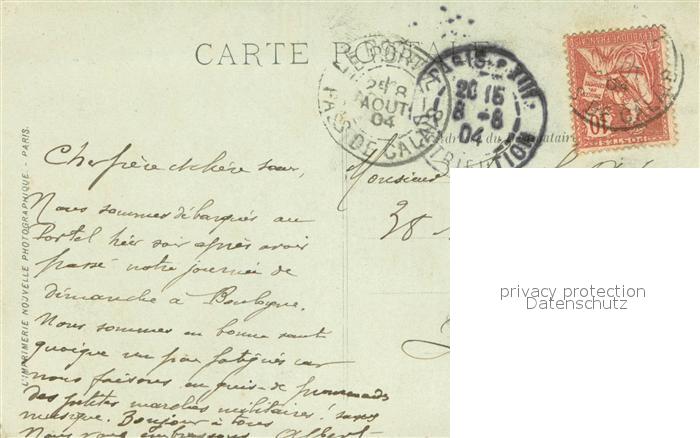 CARTE POSTALE
LE PORTEL
25 8
AOUT
04
PAS DE CALAIS
PARIS
20 15
8-8
04
DISTRIBUTION
REPUBLIQUE FRANÇAISE
10
POSTES
Adresse du Destinataire
L'IMPRIMERIE NOUVELLE PHOTOGRAPHIQUE - PARIS.
Cher frère et chère sœur,
Nous sommes débarqués au
Portel hier soir après avoir
passé notre journée de
dimanche à Boulogne.
Nous sommes en bonne santé
quoique un peu fatigués car
nous faisons en guise de promenade
des petites marches militaires! sans
musique. Bonjour à tous
Nous vous embrassons Albert
Monsieur
38
privacy protection
Datenschutz